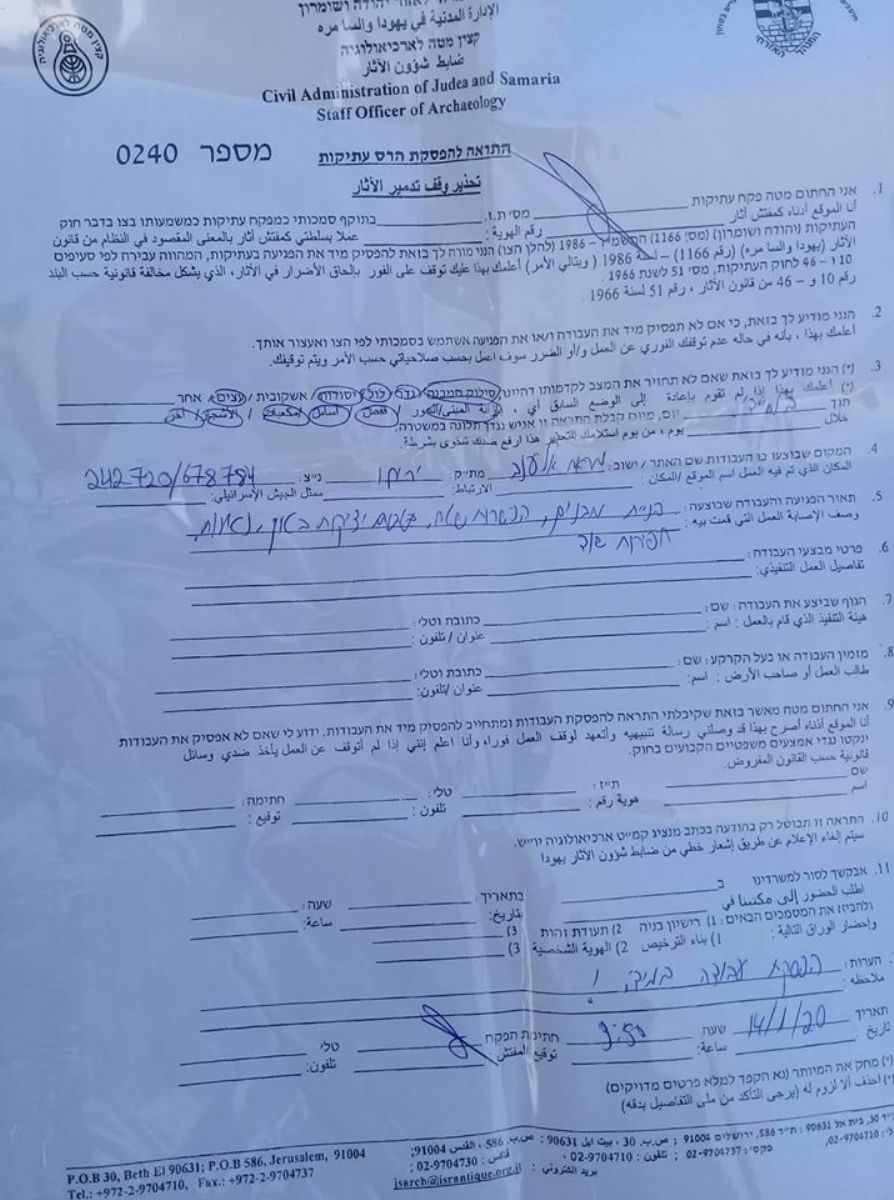 הודה ושומרון
الإدارة المدنية في يهودا والسامره
קצין מטה לארכיאולוגיה
ضابط شؤون الآثار
Civil Administration of Judea and Samaria
Staff Officer of Archaeology
מספר 0240
התראה להפסקת הרס עתיקות
تحذير وقف تدمير الآثار
1. אני החתום מטה פקח עתיקות
انا الموقع أدناه كمفتش أثار
מס׳ ת.ז. בתוקף סמכותי כמפקח עתיקות כמשמעותו בצו בדבר חוק
رقم الهوية : عملا بسلطتي كمفتش أثار بالمعنى المقصود في النظام من قانون
העתיקות (יהודה ושומרון) (מס׳ 1166) התשמ״ו – 1986 (להלן הצו) הנני מורה לך בזאת להפסיק מיד את הפגיעה בעתיקות, המהווה עבירה לפי סעיפים
الآثار (يهودا والسامره) (رقم 1166) – لحة 1986 ( وبتالي الأمر) أعلمك بهذا عليك توقف على الفور بإلحاق الأضرار في الآثار، الذي يشكل مخالفة قانونية حسب البند
10 ו – 46 לחוק העתיקות, מס׳ 51 לשנת 1966 .
رقم 10 و – 46 من قانون الآثار ، رقم 51 لسنة 1966 .
2. הנני מודיע לך בזאת, כי אם לא תפסיק מיד את העבודה ו/או את הפגיעה אשתמש בסמכותי לפי הצו ואעצור אותך.
أعلمك بهذا ، بأنه في حاله عدم توقفك الفوري عن العمل و/أو الضرر سوف اعمل بحسب صلاحياتي حسب الأمر ويتم توقيفك.
3. (*) הנני מודיע לך בזאת שאם לא תחזיר את המצב לקדמותו דהיינו סילוק המבנה/ גדר/ לול/ יסודות/ אשקובית / עצים/ אחר
(*) أعلمك بهذا إذا لم تقوم بإعادة إلى الوضع السابق أي ، إزالة المبنى/السور / قفص / أساس / مكعبات / الأشجار / أخر
תוך יום, מיום קבלת התראה זו אגיש נגדך תלונה במשטרה.
خلال يوم ، من يوم استلامك التحذير هذا ارفع ضدك شكوى بشرطة.
4. המקום שבוצעו בו העבודות שם האתר / ישוב: מת״ק: יריחו נ״צ: 242720/678784
المكان الذي تم فيه العمل اسم الموقع /المكان: الارتباط: ممثل الجيش الإسرائيلي:
5. תאור הפגיעה והעבודה שבוצעה: בניית מבנים, הכשרת שטח, יציקת בטון,
وصف الإصابة العمل التي قمت بيه :
6. פרטי מבצעי העבודה:
تفاصيل العمل التنفيذي:
7. הגוף שביצע את העבודה: שם: כתובת וטל׳:
هيئة التنفيذ الذي قام بالعمل : اسم : عنوان / تلفون:
8. מזמין העבודה או בעל הקרקע: שם: כתובת וטל׳:
طالب العمل أو صاحب الأرض : اسم: عنوان /تلفون:
9. אני החתום מטה מאשר בזאת שקיבלתי התראה להפסקת העבודות ומתחייב להפסיק מיד את העבודות. ידוע לי שאם לא אפסיק את העבודות
أنا الموقع أدناه أصرح بهذا قد وصلني رسالة تنبيهيه وأتعهد لوقف العمل فورا، وأنا اعلم إنني إذا لم أتوقف عن العمل يأخذ ضدي وسائل
ינקטו נגדי אמצעים משפטיים הקבועים בחוק.
قانونية حسب القانون المفروض.
שם ת״ז: טל׳: חתימה:
اسم هوية رقم : تلفون: توقيع :
10. התראה זו תבוטל רק בהודעה בכתב מנציג קמ״ט ארכיאולוגיה יו״ש.
سيتم إلغاء الإعلام عن طريق إشعار خطي من ضابط شؤون الآثار يهودا
11. אבקשך לסור למשרדינו ב בתאריך: שעה:
اطلب الحضور إلى مكتبنا في تاريخ: ساعة:
ולהביא את המסמכים הבאים: 1) רישיון בניה 2) תעודת זהות 3)
وإحضار الوراق التالية : 1) بناء الترخيص 2) الهوية الشخصية 3)
הערות: הפסקת עבודה במיידי !
ملاحظه :
תאריך 14/1/20 שעה 9:50 חתימת הפקח טל׳
تاريخ : ساعة: توقيع المفتش : تلفون:
(*) מחק את המיותר (נא הקפד למלא פרטים מדויקים)
(*) احذف ألا لزوم له (يرجى التأكد من ملئ التفاصيل بدقه)
ת״ד 30, בית אל 90631 ; ת״ד 586, ירושלים 91004 ; ص.ب. 30 ، بيت ايل 90631 ; ص.ب. 586 ، القدس 91004;
02-9704710, פקס׳: 02-9704737 ; تلفون : 02-9704710 ، فاكس : 02-9704730 ;
P.O.B 30, Beth El 90631; P.O.B 586, Jerusalem, 91004
Tel.: +972-2-9704710, Fax.: +972-2-9704737
بريد الكتروني : jsarch@israntique.org.il